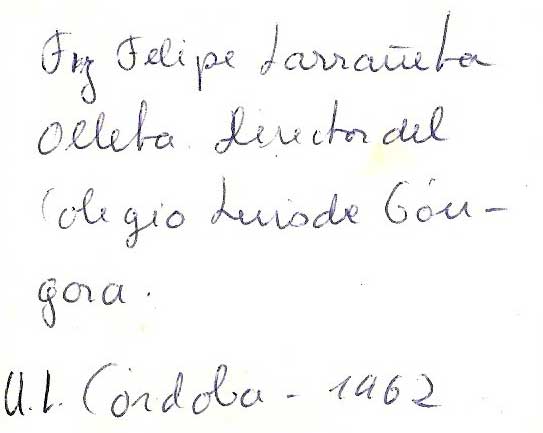 Fray Felipe Larrañeta
Olleta Director del
Colegio Luis de Gón-
gora.
U.L. Córdoba - 1962